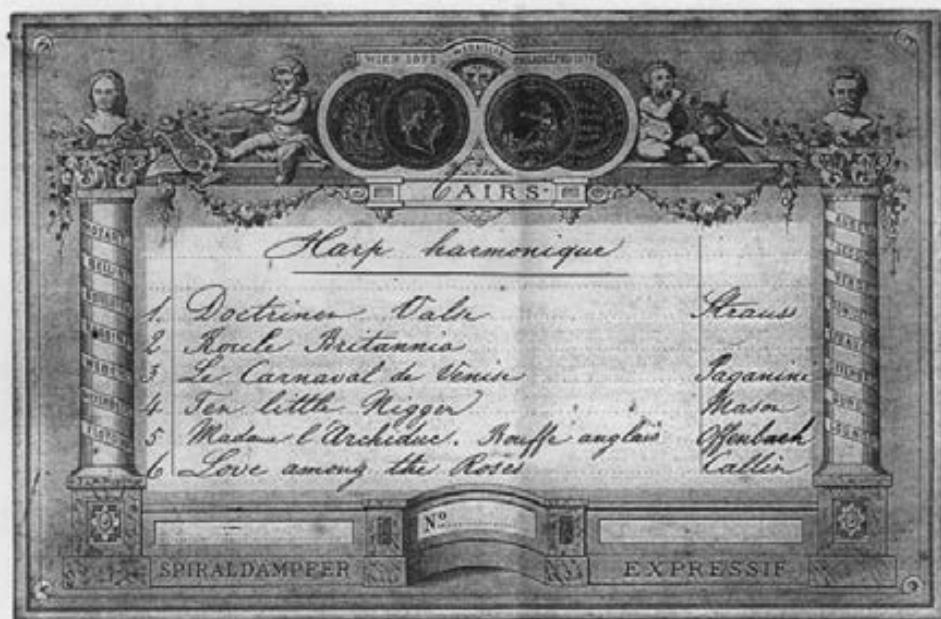 WIEN 1873 PHILADELPHIA 1876
6 AIRS
Harp harmonique
1. Doctrinen Valse Strauss
2 Roule Britannia
3. Le Carnaval de Venise Paganini
4 Ten little Nigger Mason
5 Madame l'Archiduc. Bouffe anglais Offenbach
6 Love among the Roses Catlin
No
SPIRALDÄMPFER EXPRESSIF